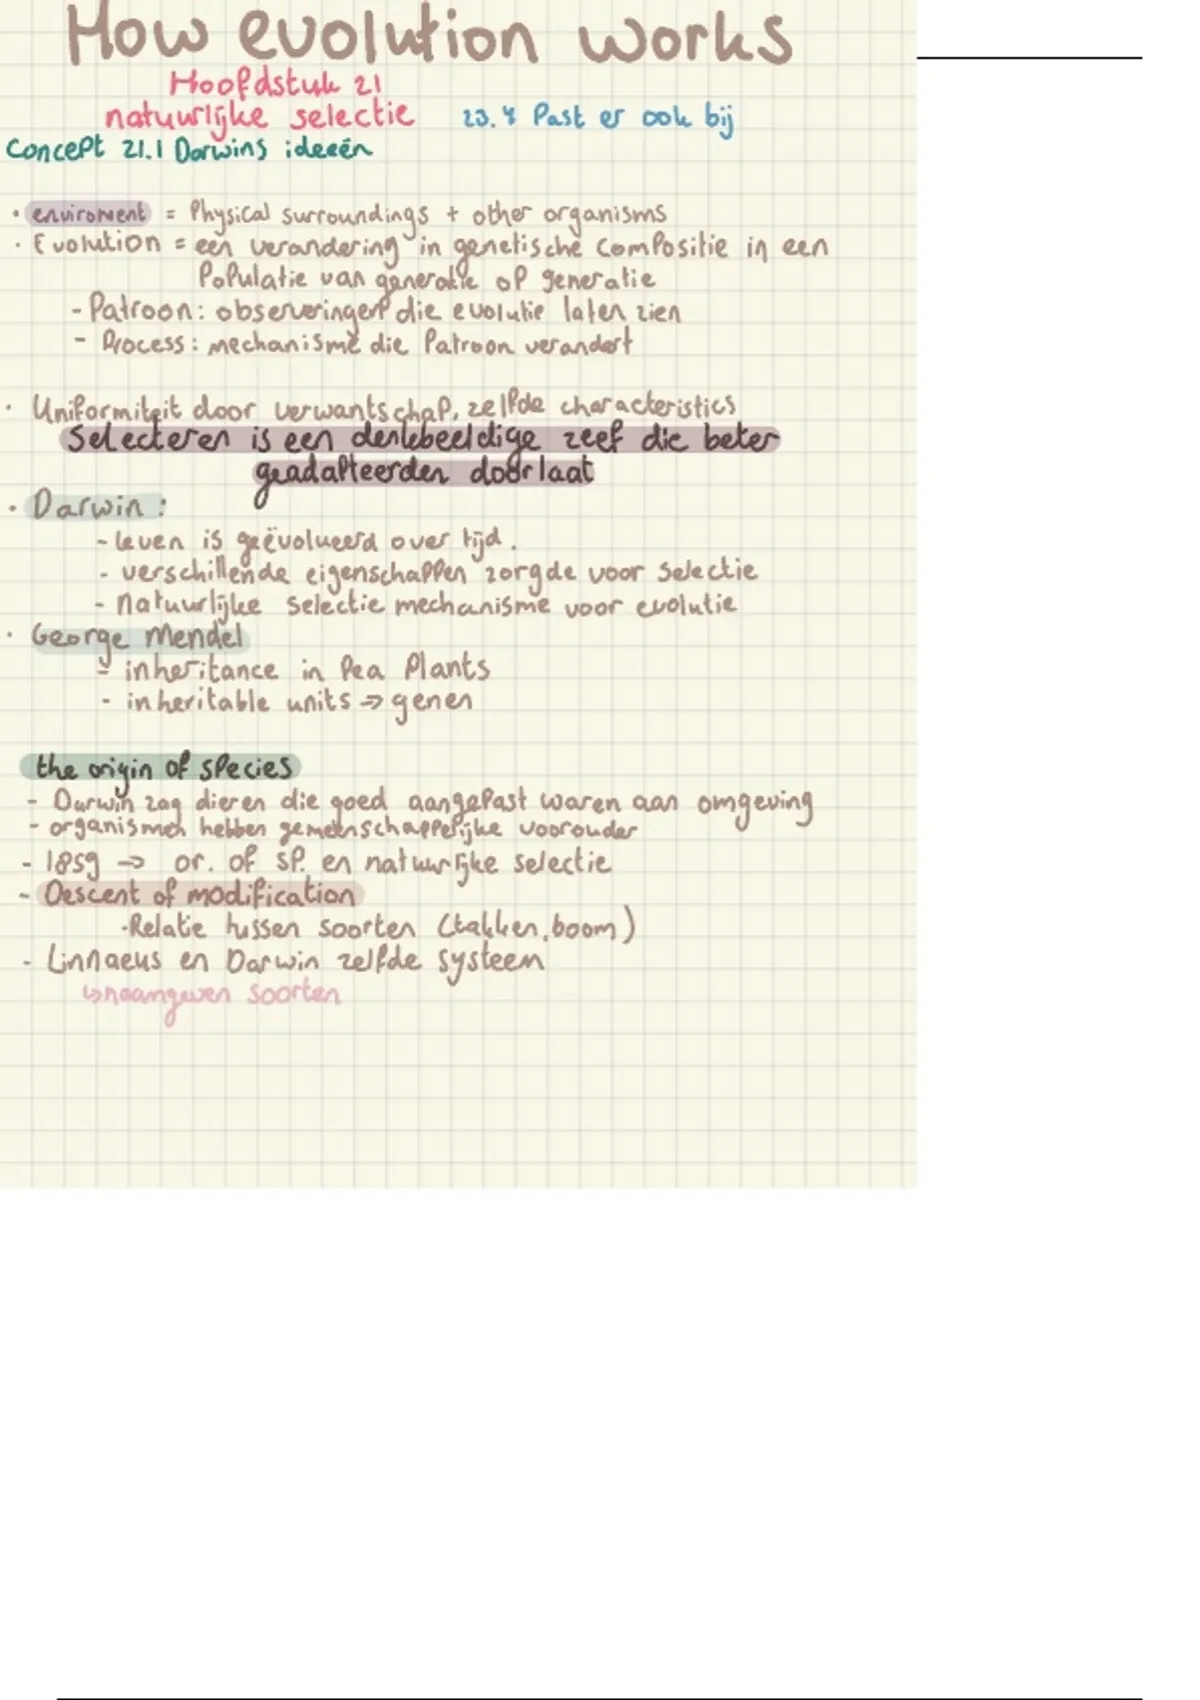 How evolution works
Hoofdstuk 21
natuurlijke selectie 23.4 Past er ook bij
Concept 21.1 Darwins ideeën
• enviroment = Physical surroundings + other organisms
• Evolution = een verandering in genetische compositie in een
Populatie van generatie op generatie
- Patroon: observeringen die evolutie laten zien
- Process: mechanisme die Patroon verandert
• Uniformiteit door verwantschap, zelfde characteristics
Selecteren is een denkbeeldige zeef die beter
geadapteerden doorlaat
• Darwin:
- leven is geëvolueerd over tijd.
- verschillende eigenschappen zorgde voor selectie
- Natuurlijke selectie mechanisme voor evolutie
• George Mendel
- inheritance in Pea Plants
- inheritable units → genen
the origin of species
- Darwin zag dieren die goed aangepast waren aan omgeving
- organismen hebben gemeenschappelijke voorouder
- 1859 → or. of SP. en natuurlijke selectie
- Descent of modification
- Relatie tussen soorten (takken, boom)
- Linnaeus en Darwin zelfde systeem
↳ naamgeven soorten